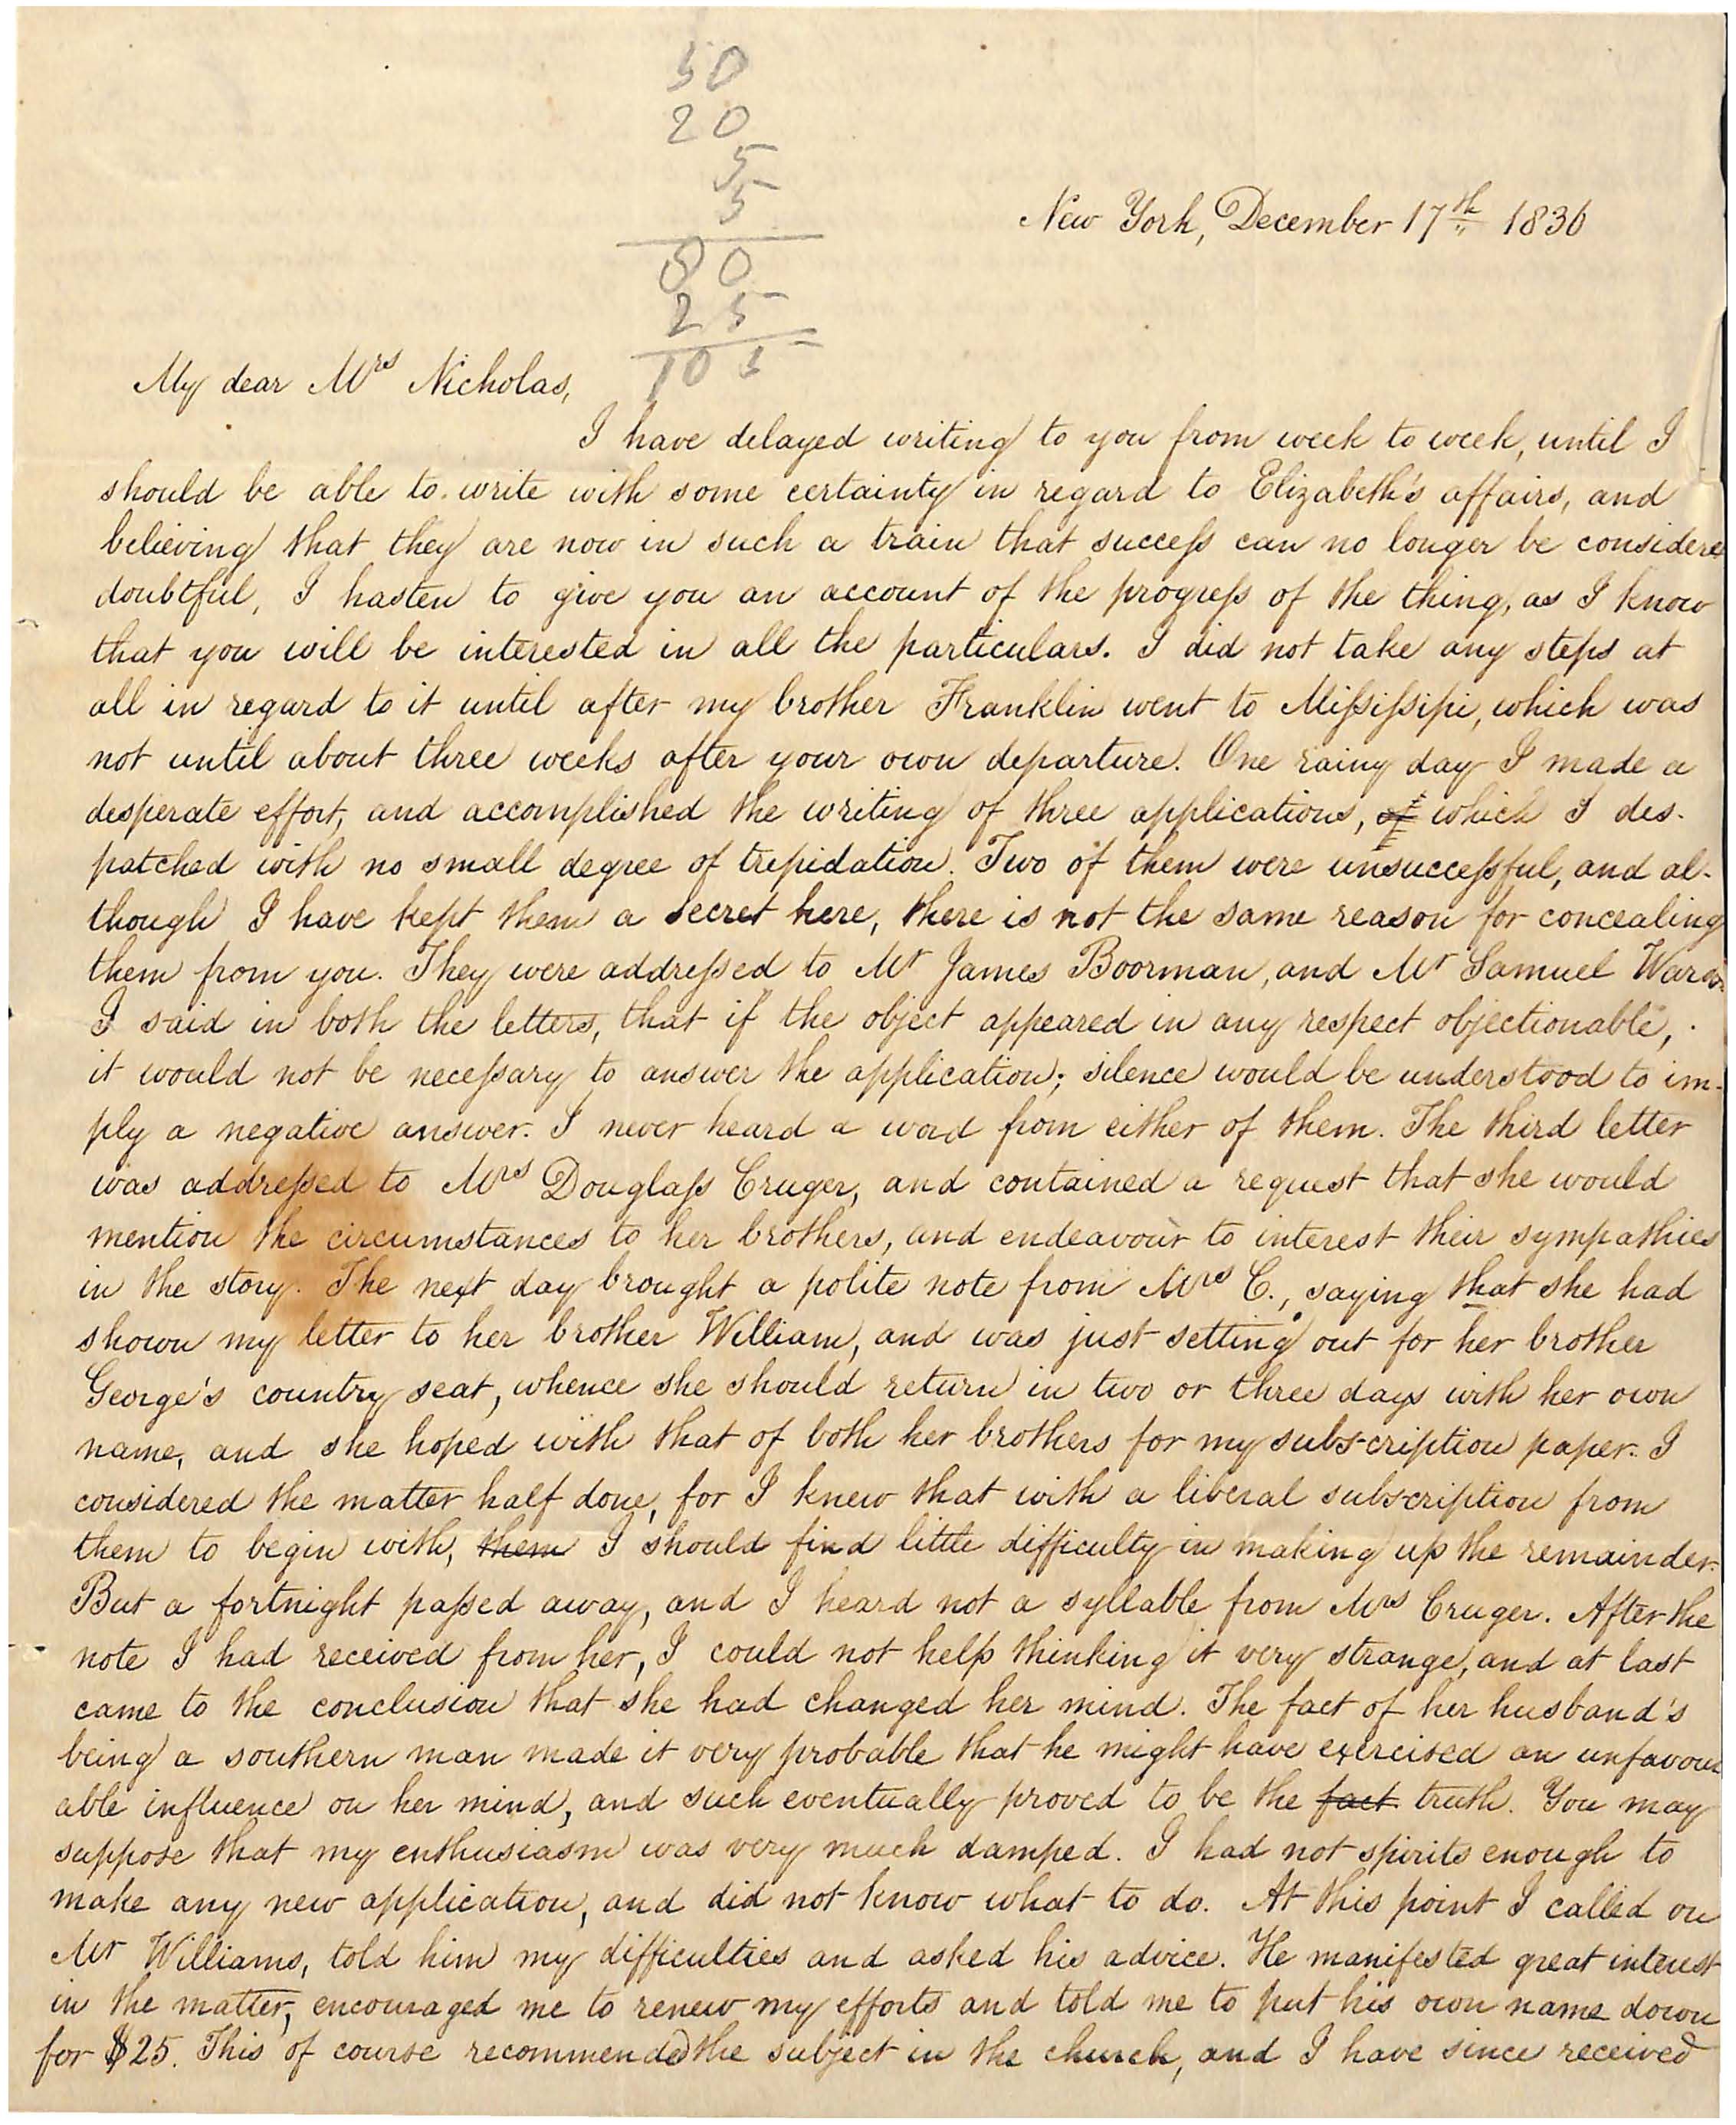 50
20
5
5
80
25
105
New York, December 17th 1836
My dear Mrs Nicholas,
I have delayed writing to you from week to week, until I
should be able to write with some certainty in regard to Elizabeth's affairs, and
believing that they are now in such a train that success can no longer be considere
doubtful, I hasten to give you an account of the progress of the thing, as I know
that you will be interested in all the particulars. I did not take any steps at
all in regard to it until after my brother Franklin went to Missisipi, which was
not until about three weeks after your own departure. One rainy day I made a
desperate effort, and accomplished the writing of three applications, of which I des-
patched with no small degree of trepidation. Two of them were unsuccessful, and al-
though I have kept them a secret here, there is not the same reason for concealing
them from you. They were addressed to Mr James Boorman, and Mr Samuel Ward.
I said in both the letters, that if the object appeared in any respect objectionable,
it would not be necessary to answer the application; silence would be understood to im-
ply a negative answer. I never heard a word from either of them. The third letter
was addressed to Mrs Douglass Cruger, and contained a request that she would
mention the circumstances to her brothers, and endeavour to interest their sympathies
in the story. The next day brought a polite note from Mrs C., saying that she had
shown my letter to her brother William, and was just setting out for her brother
George's country seat, whence she should return in two or three days with her own
name, and she hoped with that of both her brothers for my subscription paper. I
considered the matter half done, for I knew that with a liberal subscription from
them to begin with, them I should find little difficulty in making up the remainder.
But a fortnight passed away, and I heard not a syllable from Mrs Cruger. After the
note I had received from her, I could not help thinking it very strange, and at last
came to the conclusion that she had changed her mind. The fact of her husband's
being a southern man made it very probable that he might have exercised an unfavour
able influence on her mind, and such eventually proved to be the fact truth. You may
suppose that my enthusiasm was very much damped. I had not spirits enough to
make any new application, and did not know what to do. At this point I called on
Mr Williams, told him my difficulties and asked his advice. He manifested great interest
in the matter, encouraged me to renew my efforts and told me to put his own name down
for $25. This of course recommended the subject in the church, and I have since received